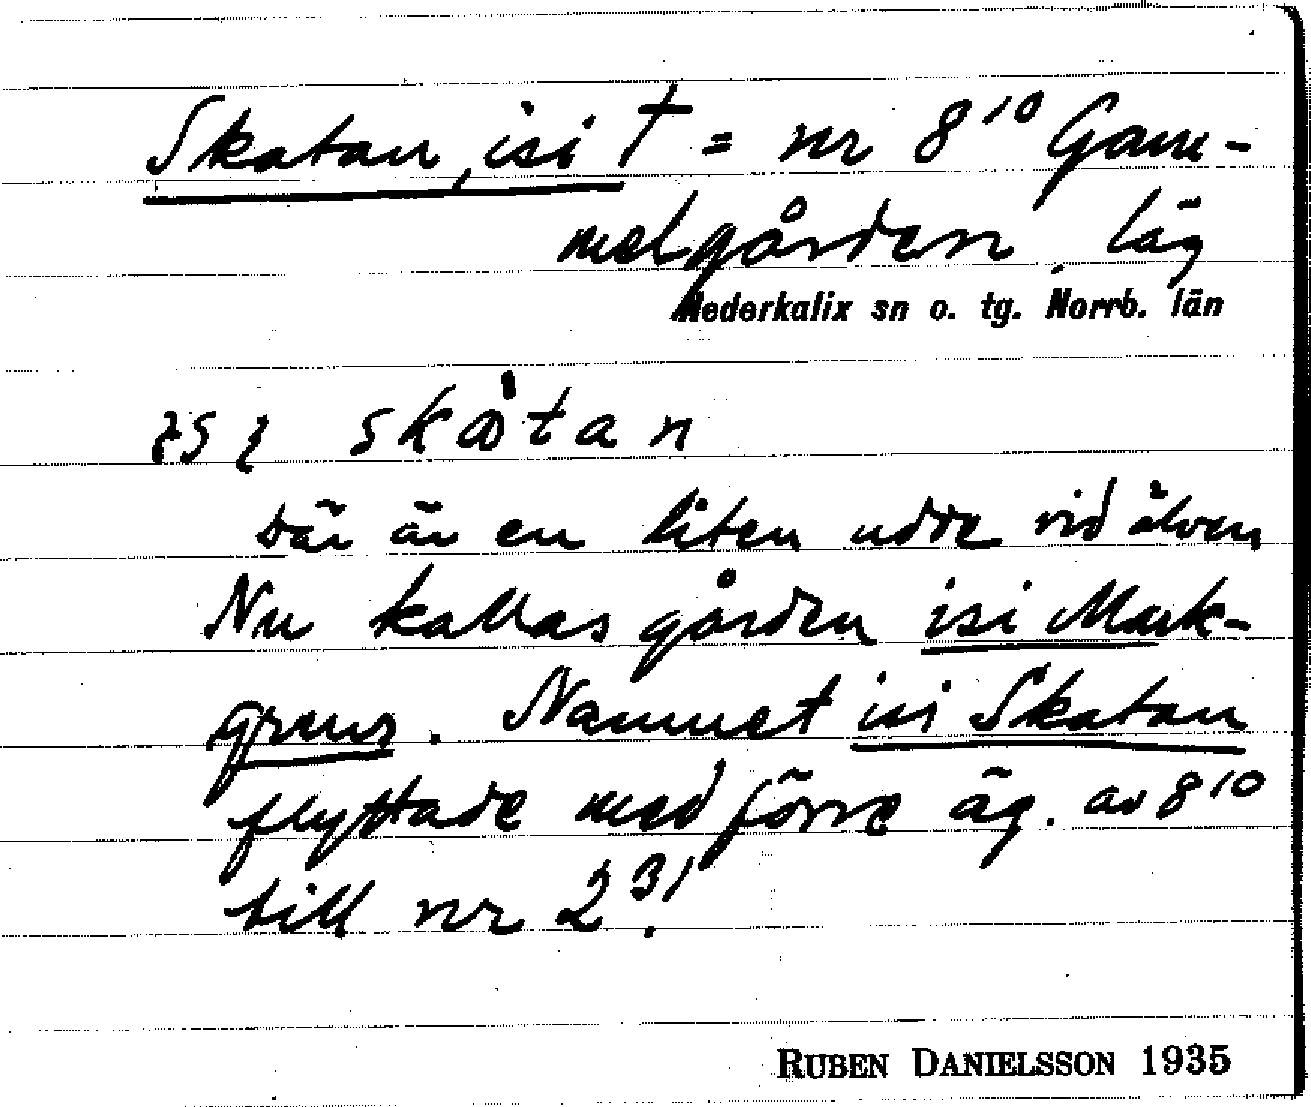 Skatan, isi † = nr 8¹⁰ Gam-
melgården, läg
Nederkalix sn o. tg. Norrb. län
skatan
där är en liten udde vid älven
Nu kallas gården isi Mark-
grens. Namnet isi Skatan
flyttade med förre äg. av 8¹⁰
till nr 2³¹.
RUBEN DANIELSSON 1935